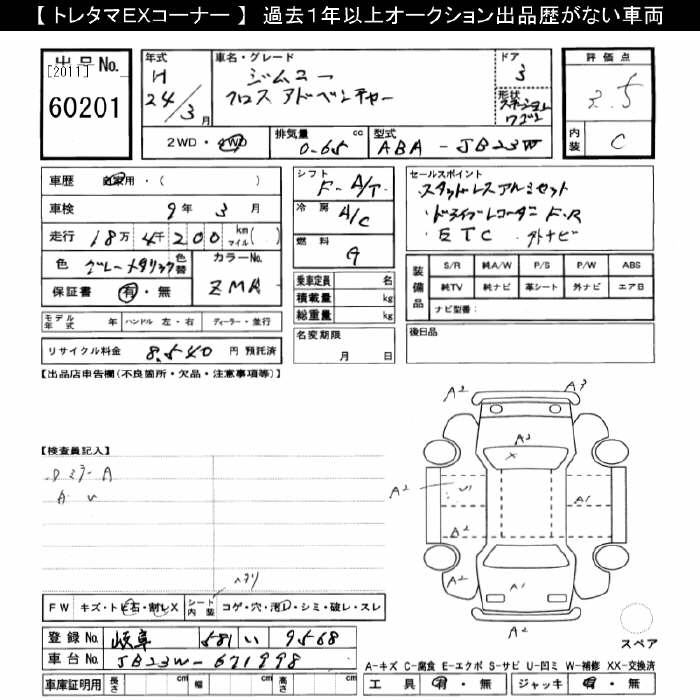 【 トレタマEXコーナー 】 過去1年以上オークション出品歴がない車両
出品No.
[2011]
60201
年式
H
24/3月
車名・グレード
ジムニー
クロスアドベンチャー
ドア
3
形状
ステーション
ワゴン
評価点
2.5
内装
C
2WD・4WD
排気量 cc
0.65
型式
ABA - JB23W
車歴 自家用・( )
車検 9年 3月
走行 18万 4千 200 km マイル( )
色 グレーメタリック 色替
カラーNo.
ZMA
保証書 有・無
モデル年式 年 ハンドル 左・右 ディーラー・並行
リサイクル料金 8,540 円 預託済
シフト
F-A/T
冷房
A/C
燃料
G
乗車定員 名
積載量 kg
総重量 kg
名変期限
月 日
セールスポイント
・スタッドレスアルミセット
・ドライブレコーダーF.R
・ETC ・外ナビ
装備品
S/R 純A/W P/S P/W ABS
純TV 純ナビ 革シート 外ナビ エアB
ナビ型番:
後日品
【出品店申告欄(不良箇所・欠品・注意事項等)】
【検査員記入】
Dミラー A
A U
ヘタリ
FW キズ・トビ石・割レX シート内装 コゲ・穴・汚レ・シミ・破レ・スレ
登録No. 岐阜 581 い 9568
車台No. JB23W-671998
車庫証明用 長さ cm 幅 cm 高さ cm
A2
A3
A2
X
A2
U1
A1
A2
A2
A2
A2
スペア
A-キズ C-腐食 E-エクボ S-サビ U-凹ミ W-補修 XX-交換済
工具 有・無 ジャッキ 有・無